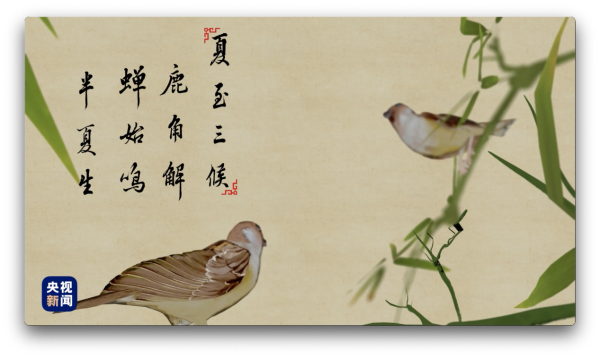 夏至三候
鹿角解
蝉始鸣
半夏生
央视
新闻